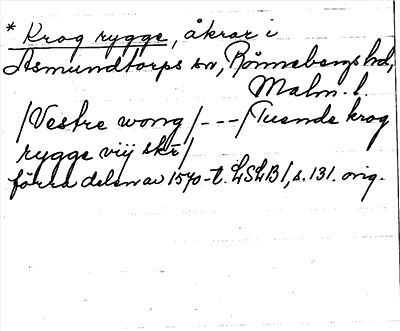 * Krog rygge, åkrar i
Asmundtorps sn, Rönnebergs hd,
Malm. l.
/Vestre wong/ - - - /Tuende krog
rygge viij skr/
förra delen av 1570-t. LSLB I, s. 131. orig.